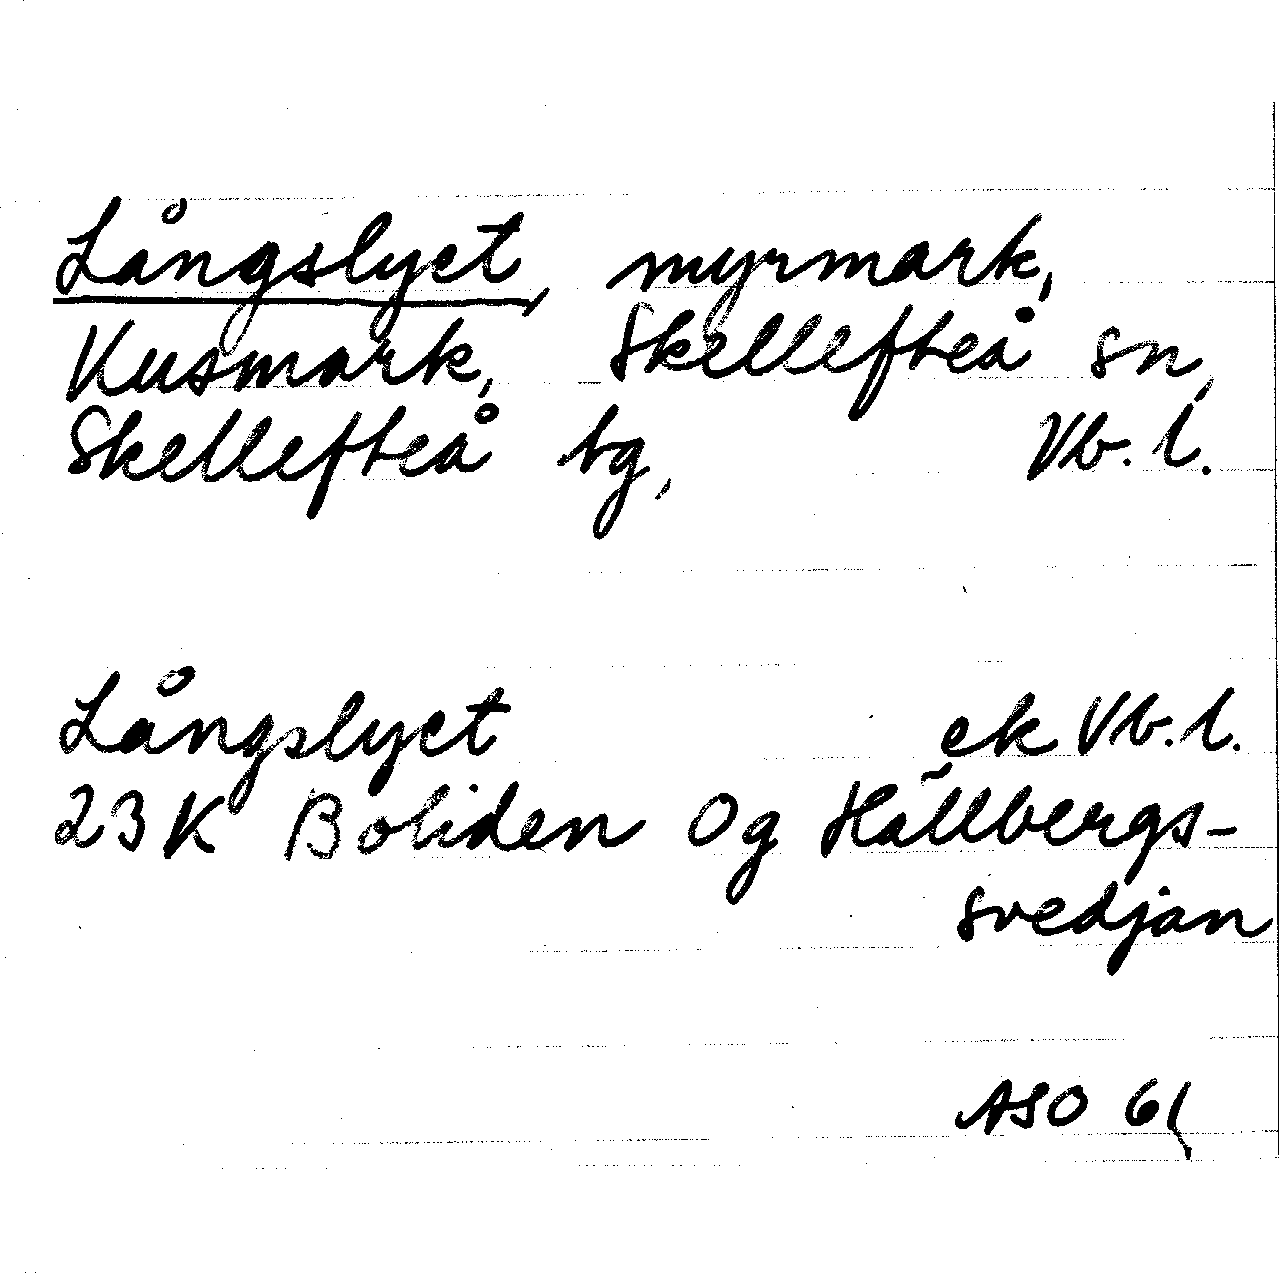 Långslyet, myrmark,
Kusmark, Skellefteå sn,
Skellefteå tg, Vb. l.
Långslyet ek Vb. l.
23K Boliden 0g Hällbergs-
svedjan
ASO 61